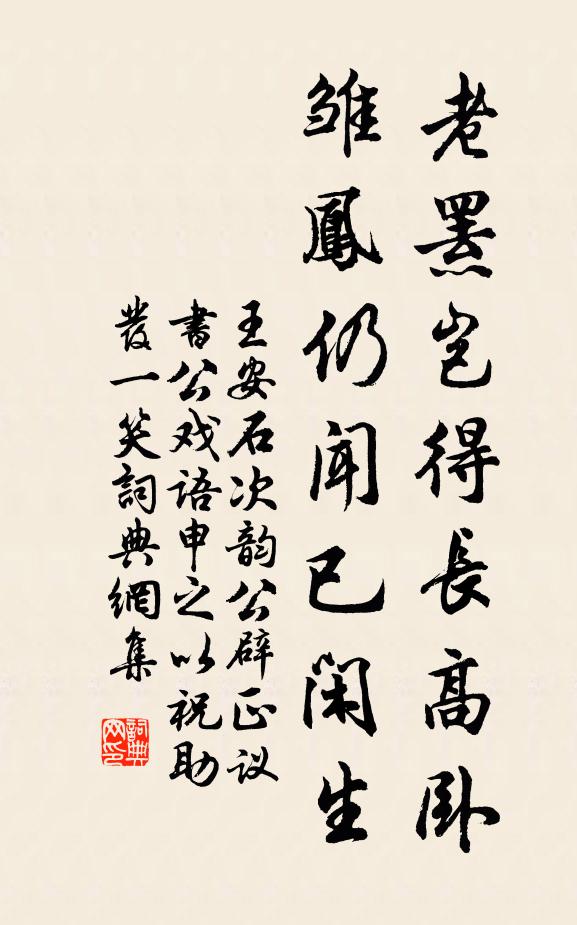 老罴岂得長高卧
雏鳳仍聞已闲生
王安石次韵公辟正议
書公戏语申之以祝助
發一笑詞典網集
詞典网印